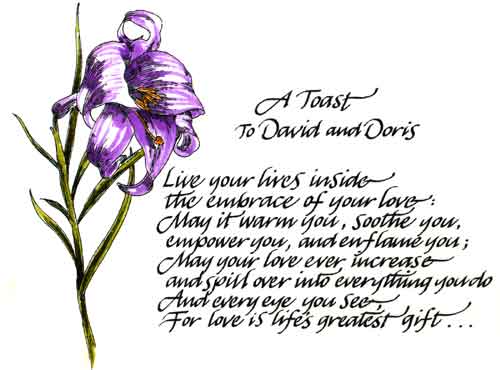 A Toast
To David and Doris
Live your lives inside
the embrace of your love:
May it warm you, soothe you,
empower you, and enflame you;
May your love ever increase
and spill over into everything you do
And every eye you see,
For love is life's greatest gift . . .